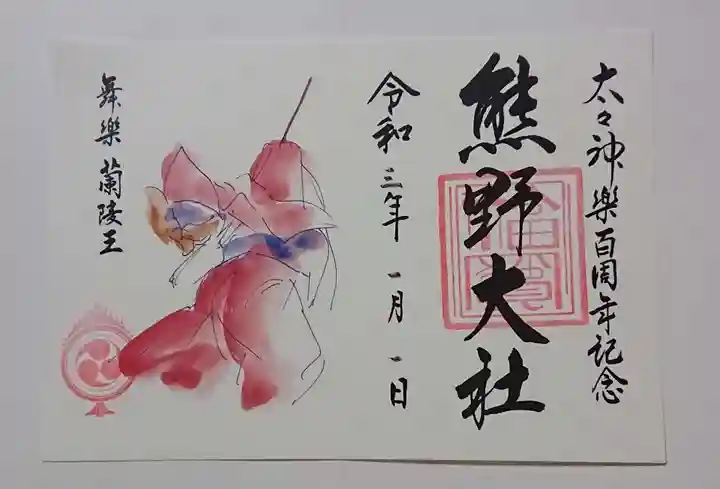 太々神樂百周年記念
熊野大社
令和三年 一月 一日
舞樂 蘭陵王